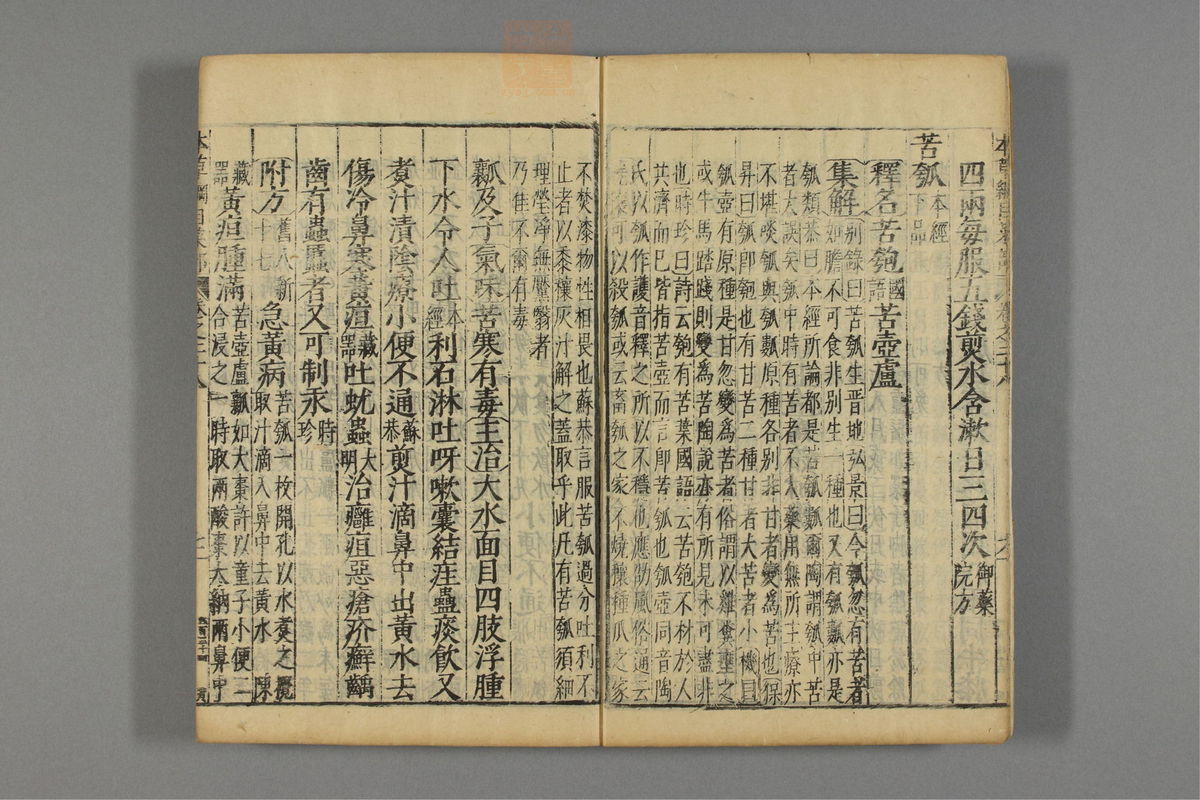 四兩每服五錢煎水含漱日三四次御藥
院方
苦瓠本經
下品
釋名苦匏國
語苦壺盧
集解别錄曰苦瓠生晋地弘景曰今瓠忽有苦者
如膽不可食非别生一種也又有瓠瓤亦是
瓠類恭曰本經所論都是苦瓠瓤爾陶謂瓠中苦
者大誤矣瓠中時有苦者不入藥用無所主療亦
不堪啖瓠與瓠瓤原種各别非甘者變爲苦也保
昇曰瓠卽匏也有甘苦二種甘者大苦者小機曰
瓠壺有原種是甘忽變爲苦者俗謂以雞糞壅之
或牛馬踏踐則變爲苦陶說亦有所見未可盡非
也時珍曰詩云匏有苦葉國語云苦匏不材於人
共濟而已皆指苦壺而言卽苦瓠也瓠壺同音陶
氏以瓠作護音釋之所以不穩也應劭風俗通云
燒穰可以殺瓠或云畜瓠之家不燒穰種瓜之家
不焚漆物性相畏也蘇恭言服苦瓠過分吐利不
止者以黍穰灰汁解之蓋取乎此凡有苦瓠須細
理瑩淨無黶翳者
乃佳不爾有毒
瓤及子氣味苦寒有毒主治大水面目四肢浮腫
下水令人吐本
經利石淋吐呀嗽囊結疰蠱痰飲又
煮汁漬陰療小便不通蘇
恭煎汁滴鼻中出黃水去
傷冷鼻塞黃疸藏
器吐蚘蟲大
明治癰疽惡瘡疥癬齲
齒有蟲䘌者又可制汞時
珍
附方舊八新
十七急黃病苦瓠一枚開孔以水煮之攪
取汁滴入鼻中去黃水陳
藏
器黃疸腫滿苦壺盧瓤如大棗許以童子小便二
合浸之一時取兩酸棗大納兩鼻中